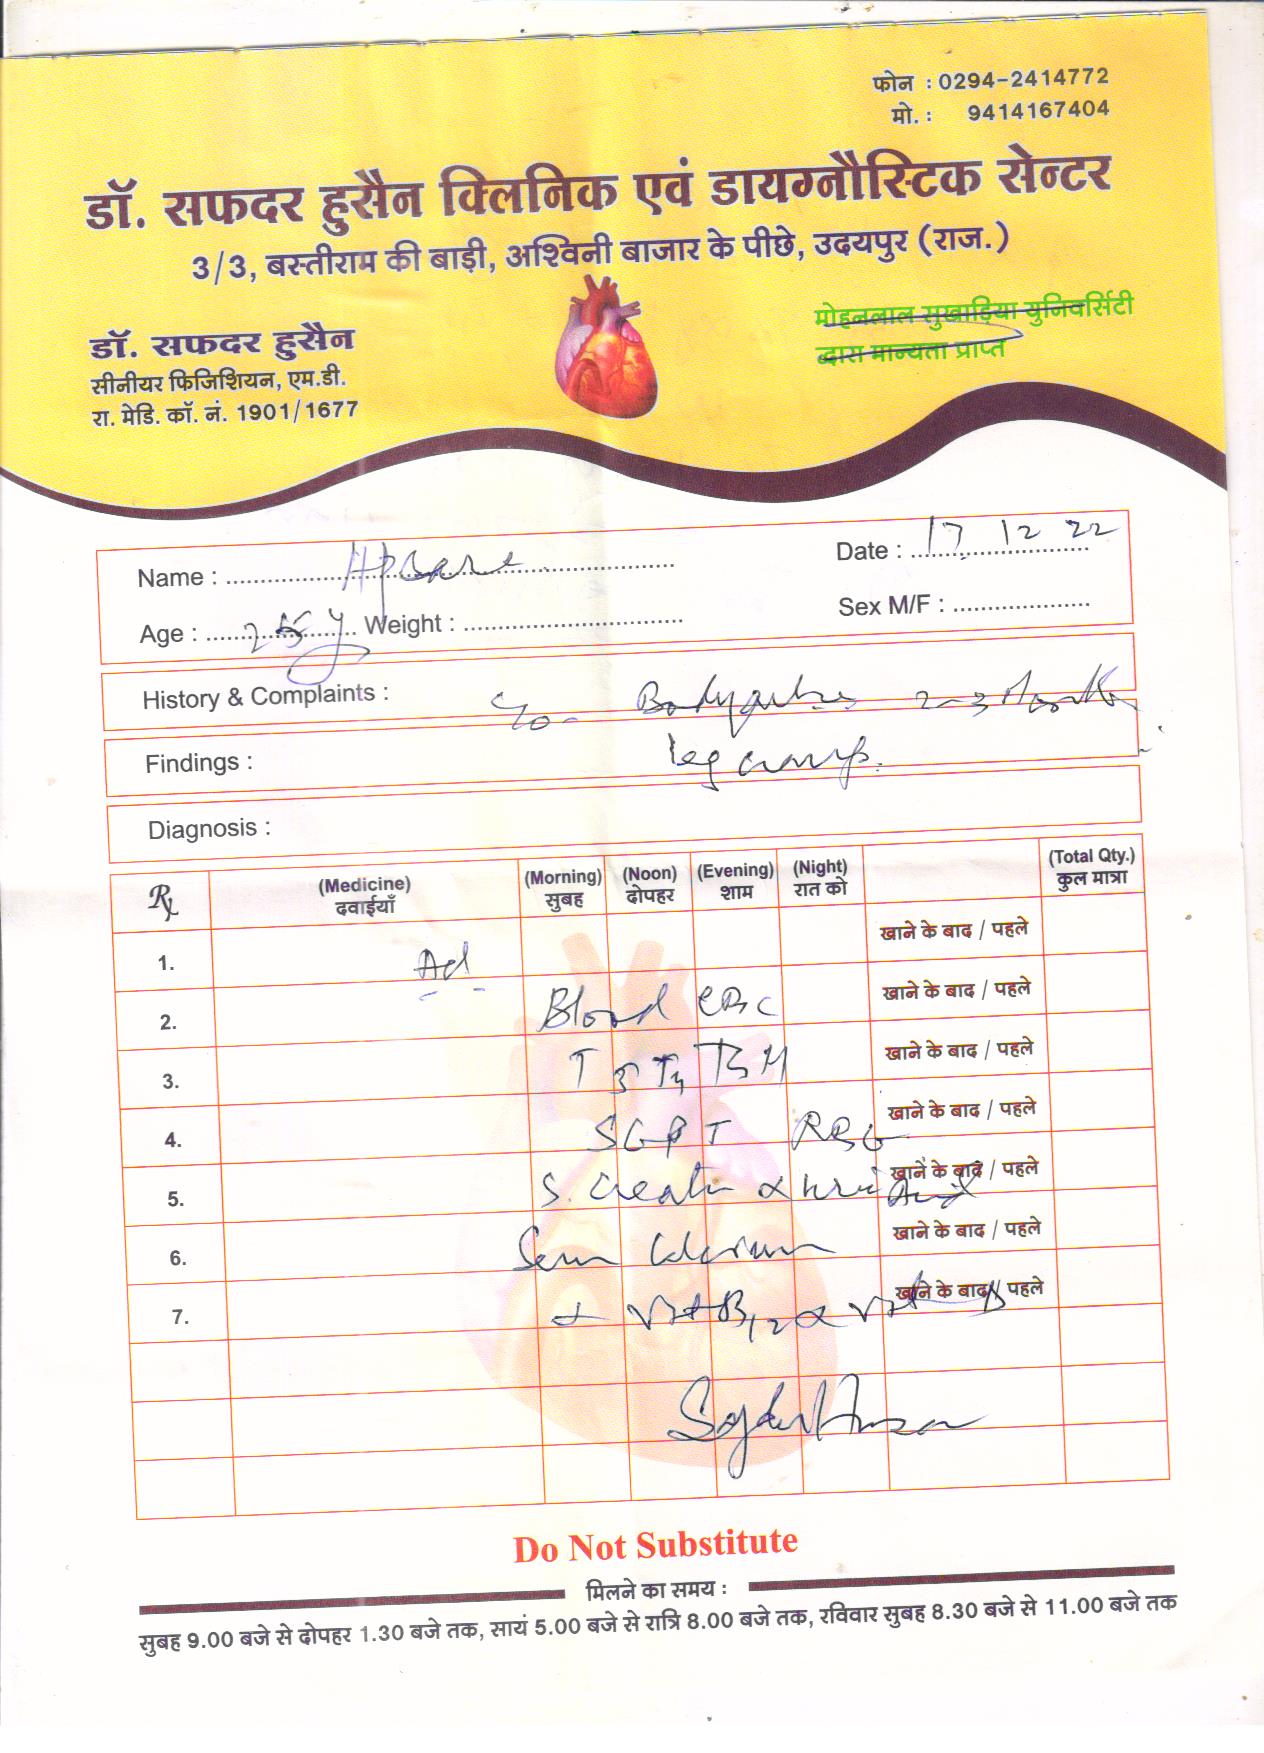 फोन : 0294-2414772
मो. : 9414167404
डॉ. सफदर हुसैन क्लिनिक एवं डायग्नौस्टिक सेन्टर
3/3, बस्तीराम की बाड़ी, अश्विनी बाजार के पीछे, उदयपुर (राज.)
मोहनलाल सुखाड़िया युनिवर्सिटी
द्वारा मान्यता प्राप्त
डॉ. सफदर हुसैन
सीनीयर फिजिशियन, एम.डी.
रा. मेडि. कॉ. नं. 1901/1677
Name : Date : 17 12 22
Age : 25y Weight : Sex M/F :
History & Complaints : c/o - Bodyaches 2-3 Months
Findings : leg cramps.
Diagnosis :
Rx (Medicine) (Morning) (Noon) (Evening) (Night) (Total Qty.)
दवाईयाँ सुबह दोपहर शाम रात को कुल मात्रा
1. Ad खाने के बाद / पहले
2. Blood CBC खाने के बाद / पहले
3. T3 T4 TSH खाने के बाद / पहले
4. SGPT RBS खाने के बाद / पहले
5. S. Creatin & Uric Acid खाने के बाद / पहले
6. Serum Calcium खाने के बाद / पहले
7. + Vit B12 & Vit D खाने के बाद / पहले
Do Not Substitute
मिलने का समय :
सुबह 9.00 बजे से दोपहर 1.30 बजे तक, सायं 5.00 बजे से रात्रि 8.00 बजे तक, रविवार सुबह 8.30 बजे से 11.00 बजे तक